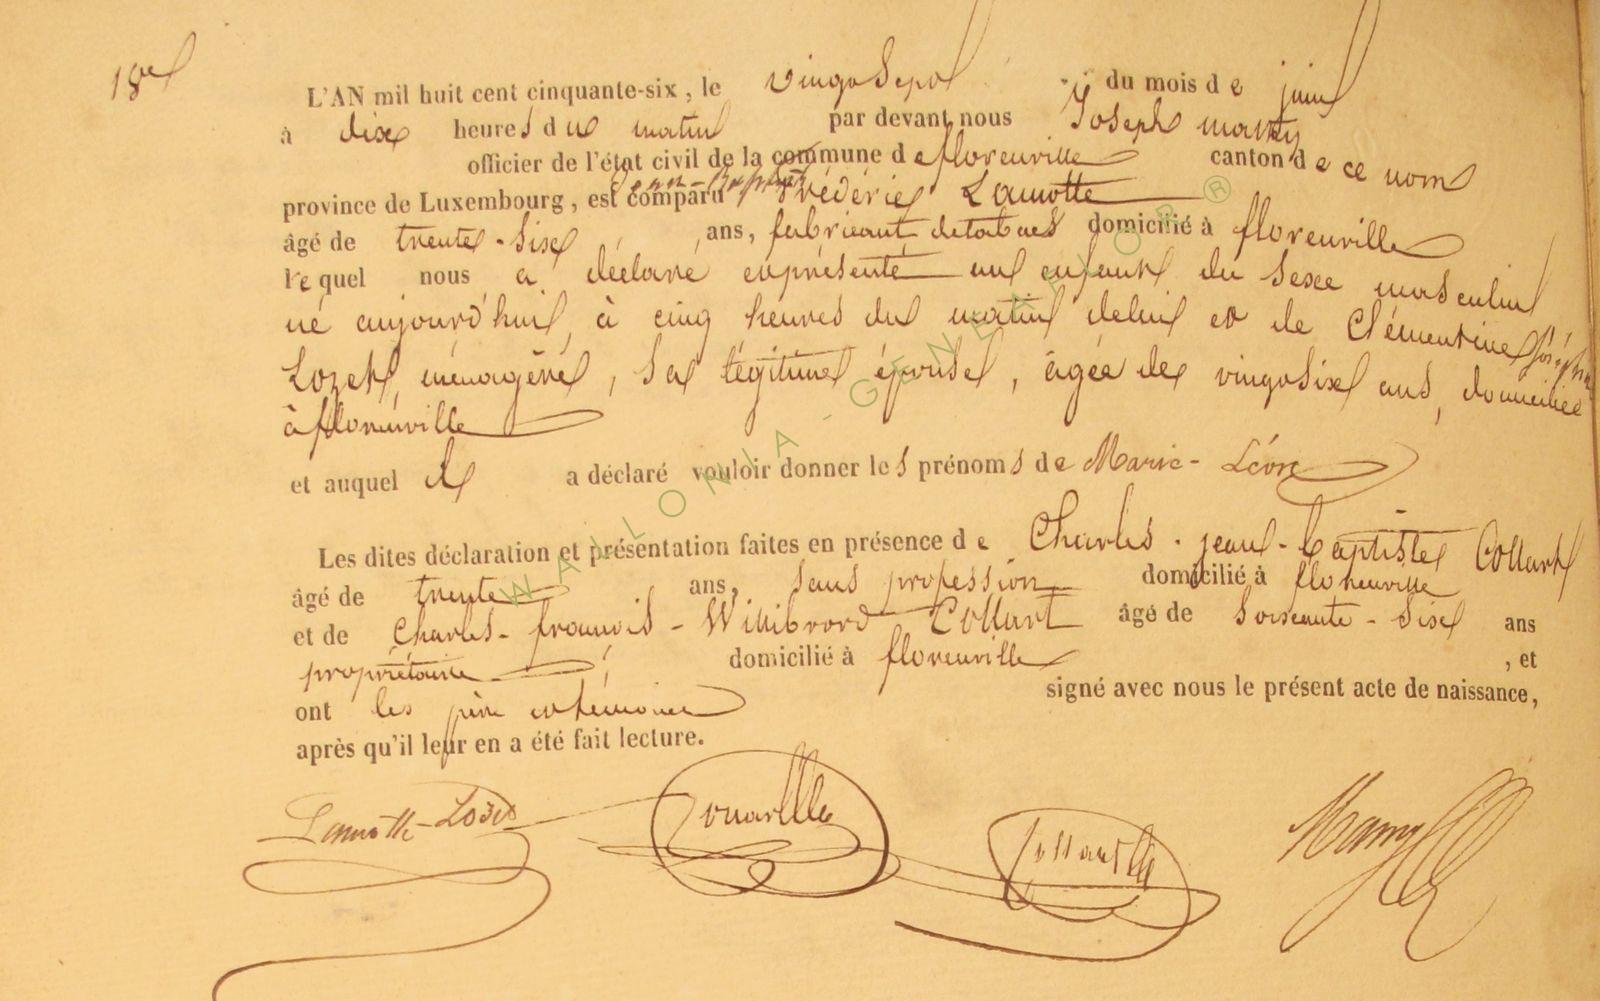 18e
L'AN mil huit cent cinquante-six, le vingt sept du mois de juin
à dix heures du matin par devant nous Joseph
officier de l'état civil de la commune de florenville canton de ce nom
Jean-Baptiste
province de Luxembourg, est comparu frédéric Lamotte
âgé de trente-six ans, fabricant de tabacs domicilié à florenville
lequel nous a déclaré et présenté un enfant du sexe masculin
né aujourd'hui, à cinq heures du matin de lui et de Clémentine Joséphine
Lozet, ménagère, sa légitime épouse, âgée de vingt six ans, domiciliée
à florenville
et auquel il a déclaré vouloir donner les prénoms de Marie-Léon
Les dites déclaration et présentation faites en présence de Charles-jean-baptiste Collart
âgé de trente ans, sans profession domicilié à florenville
et de Charles-françois-Willibrord Collart âgé de soixante-six ans
propriétaire, domicilié à florenville, et
ont les père et témoins signé avec nous le présent acte de naissance,
après qu'il leur en a été fait lecture.
Lamotte-Lozet
WALLONIA-GENEALOR ®